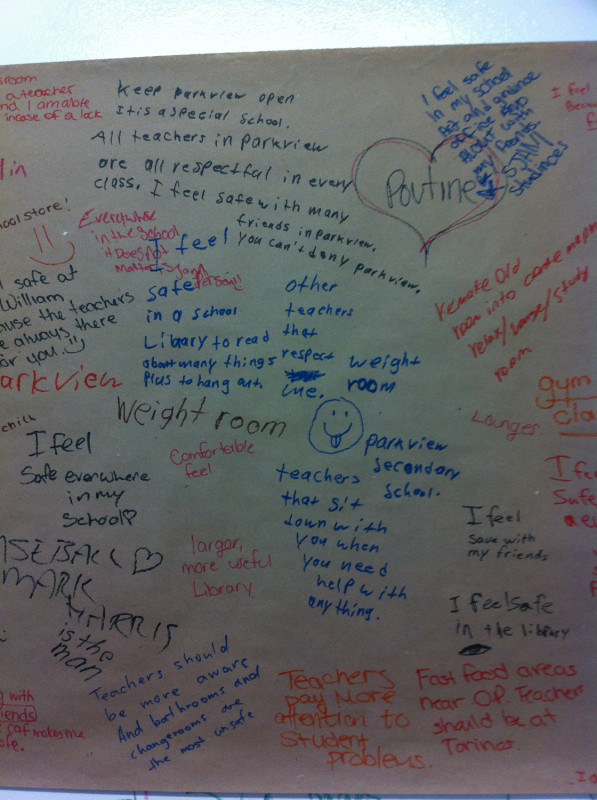 room
a teacher
and I am alone
incase of a lock
in
Keep parkview open
It is a special school.
All teachers in parkview
are all respectful in every
class. I feel safe with many
friends in parkview.
you can't deny parkview.
I feel safe
in my school
office
with
my friends.
Poutine
I feel
hool store!
Everywhere
in the school
it does not
matter
safe at
William
ause the teachers
e always there
or you.
arkview
I feel
safe
in a school
Library to read
about many things
plus to hang out
other
teachers
that
respect
me.
weight
room
room into
relax/ /study
room
gym
cla
Lounges
chill
Weight room
I feel
Safe everywhere
in my
School
Comfortable
feel
parkview
Secondary
School.
teachers
that sit
down with
you when
you need
help with
anything.
I feel
save with
my friends
I fee
Safe
ASEBALL
MARK
HARRIS
is the
man
larger,
more useful
Library
I feel safe
in the library
Teachers should
be more aware
And bathrooms and
changerooms are
the most unsafe
Teachers
pay More
attention to
Student
problems.
Fast food areas
near O.P. Teachers
should be at
Torinos.
g with
iends
caf makes me
afe.